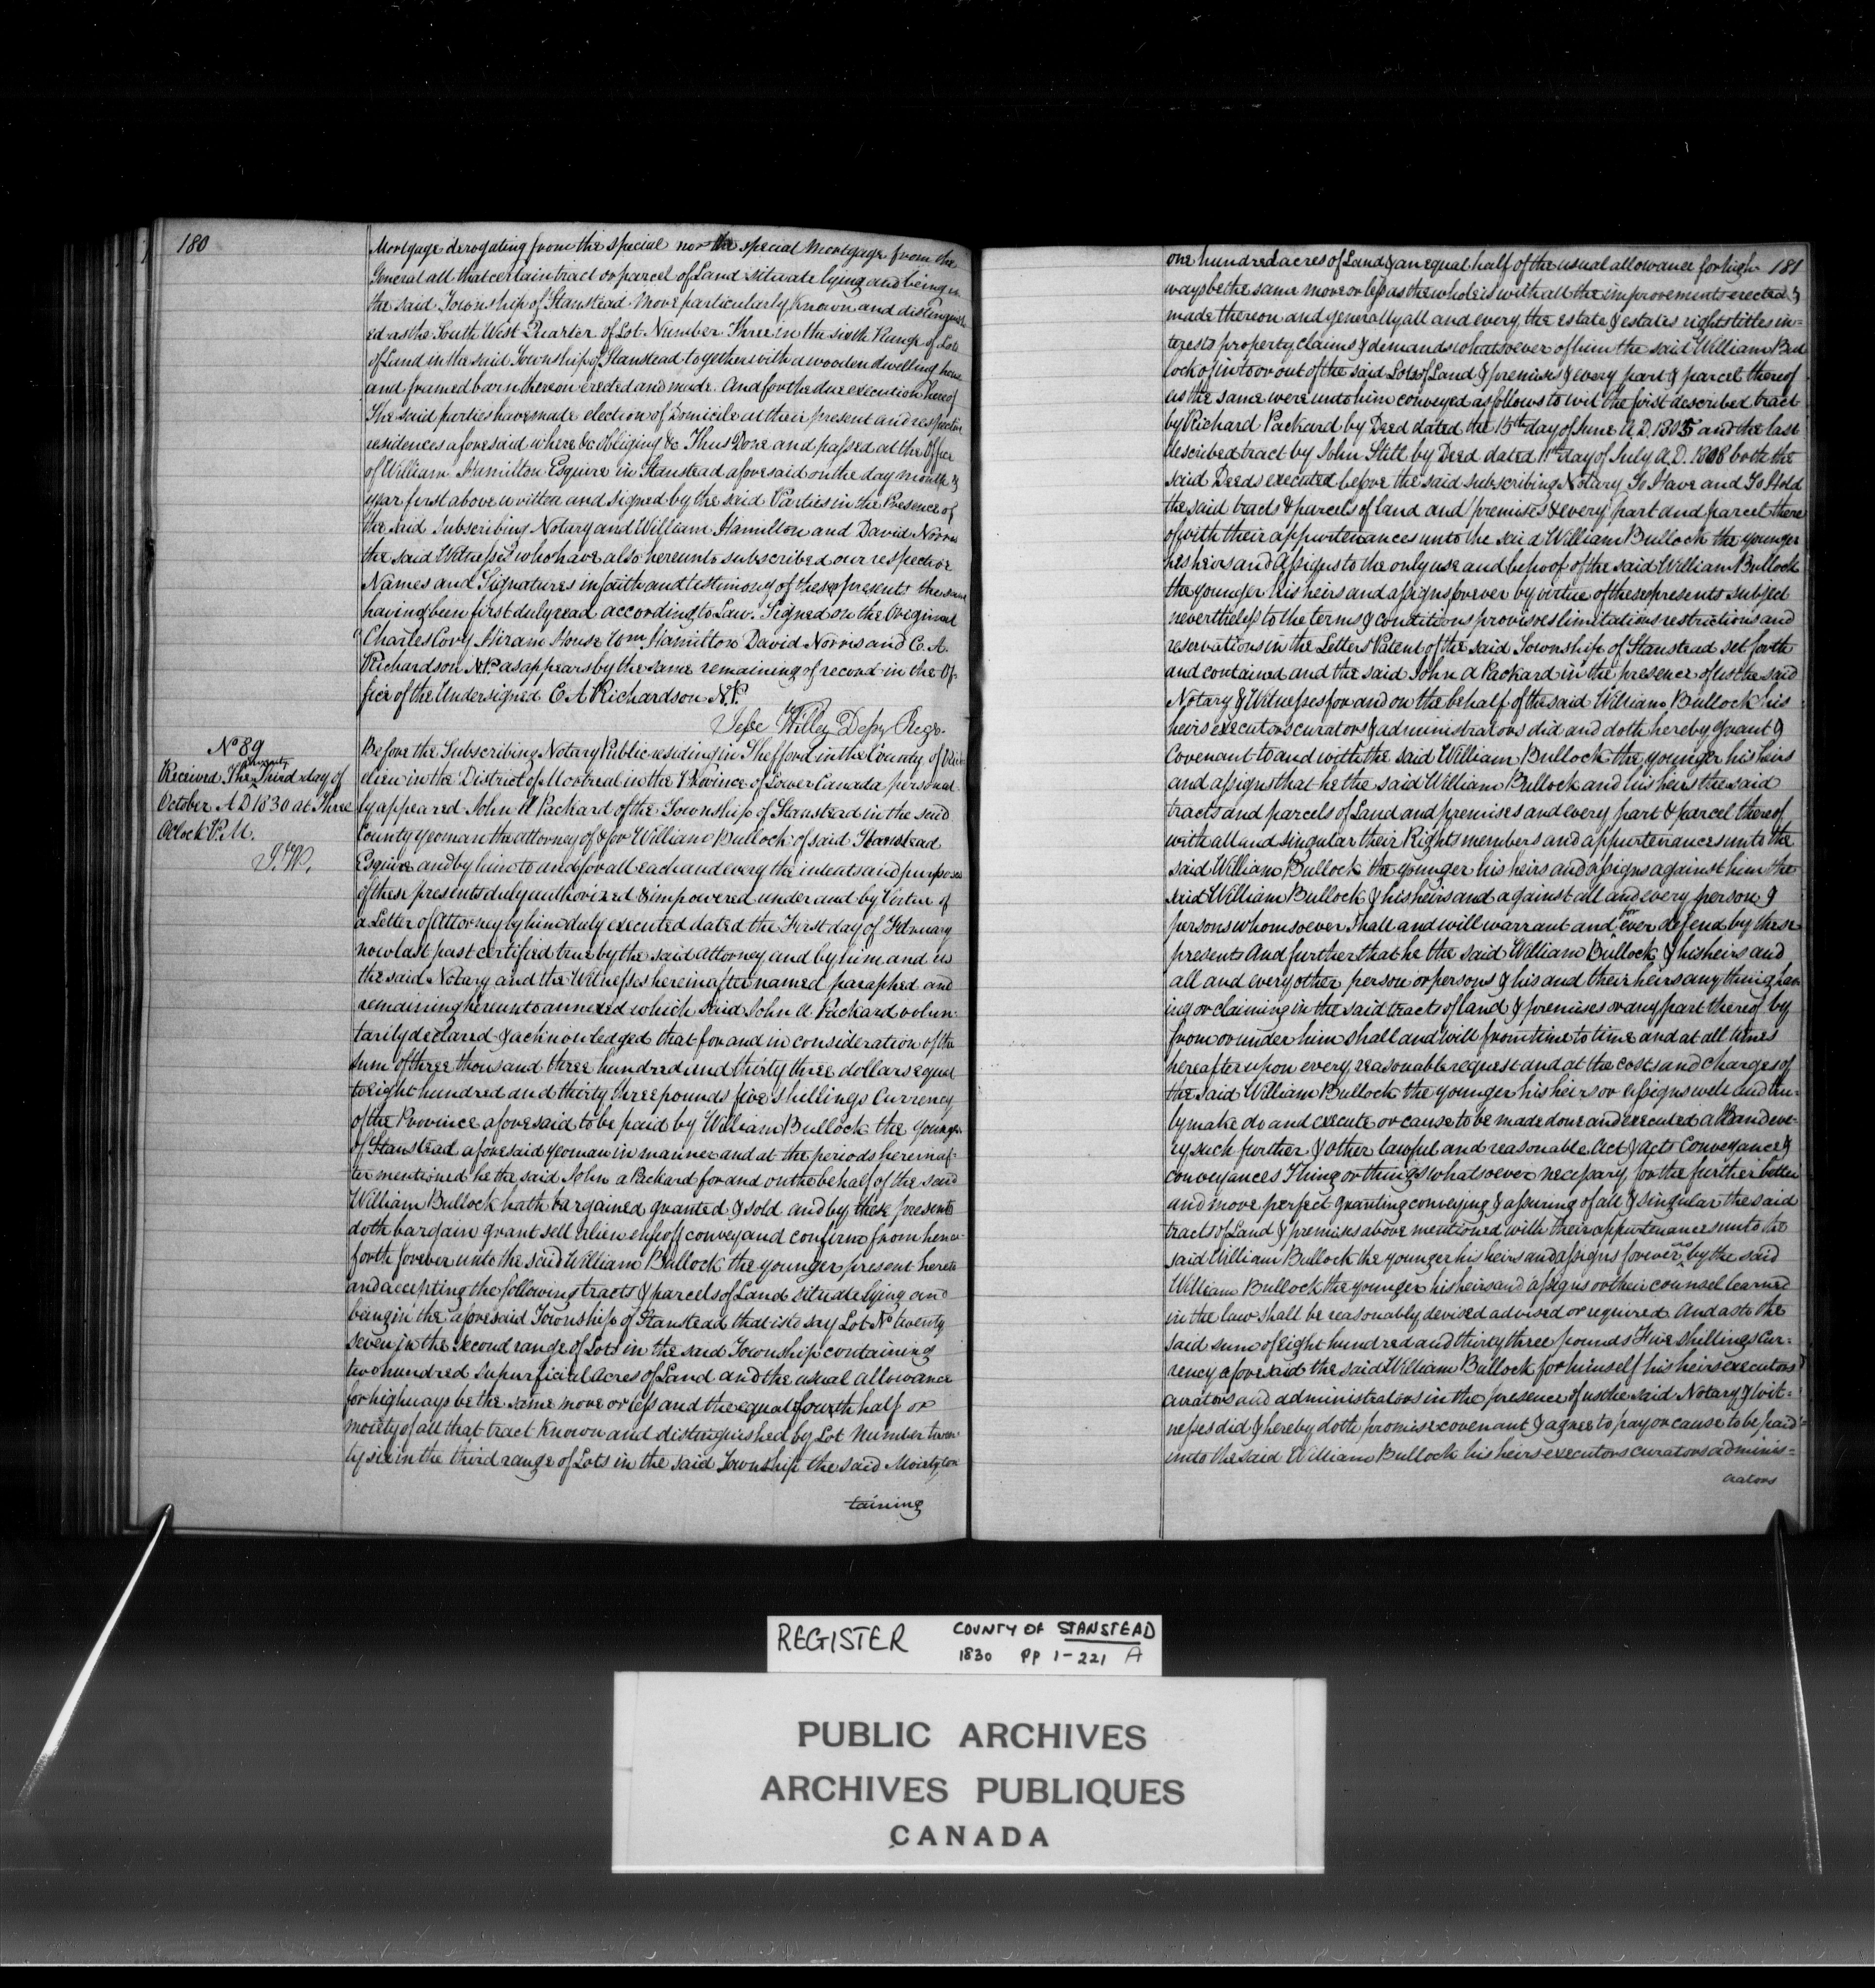 180
Mortgage derogating from the special nor the special Mortgage from the
General all that certain tract or parcel of Land situate lying and being in
the said Township of Stanstead more particularly known and distinguish
ed as the South West Quarter of Lot Number Three in the sixth Range of Lots
of Land in the said Township of Stanstead together with a wooden dwelling house
and framed barn thereon erected and made. And for the due execution hereof
The said parties have made election of Domicile at their present and respective
residences aforesaid where &c obliging &c Thus Done and passed at the Office
of William Hamilton Esquire in Stanstead aforesaid on the day month &
year first above written and signed by the said Parties in the Presence of
the said subscribing Notary and William Hamilton and David Norris
the said Witnesses who have also hereunto subscribed our respective
Names and Signatures in faith and testimony of these presents the same
having been first duly read according to Law. Signed on the Original
Charles Cory Hiram House Wm Hamilton David Norris and C. A.
Richardson N.P. as appears by the same remaining of record in the Of-
fice of the Undersigned C. A Richardson N.P.
Willey Depy Regr.
No 89
Received The twenty Third day of
October A D 1830 at Three
Oclock P.M.
J.W.
Before the Subscribing Notary Public residing in Shefford in the County of Riche
lieu in the District of Montreal in the Province of Lower Canada personal
ly appeared John A Packard of the Township of Stanstead in the said
County Yeoman the attorney of & for William Bullock of said Stanstead
Esquire and by him to and for all each and every the intents and purposes
of these presents duly authorized & impowered under and by Virtue of
a Letter of Attorney by him duly executed dated the First day of February
now last past certified true by the said Attorney and by him and us
the said Notary and the Witnesses hereinafter named paraphed and
remaining hereunto annexed which said John A. Packard volun-
tarily declared & acknowledged that for and in consideration of the
sum of three thousand three hundred and thirty three dollars equal
to eight hundred and thirty three pounds five Shillings Currency
of the Province aforesaid to be paid by William Bullock the younger
of Stanstead aforesaid yeoman in manner and at the periods hereinaf-
ter mentioned he the said John A Packard for and on the behalf of the said
William Bullock hath bargained granted & sold and by these presents
doth bargain grant sell alien enfeoff convey and confirm from hence
forth forever unto the said William Bullock the younger present hereto
and accepting the following tracts & parcels of Land situate lying and
being in the aforesaid Township of Stanstead that is to say Lot No twenty
seven in the second range of Lots in the said Township containing
two hundred Supurficial Acres of Land and the usual allowance
for highways be the same more or less and the equal fourth half or
moiety of all that tract Known and distinguished by Lot Number twen
ty six in the third range of Lots in the said Township the said Moiety con
taining
181
one hundred acres of Land & an equal half of the usual allowance for high
ways be the same more or less as the whole is with all the improvements erected &
made thereon and generally all and every the estate & estates rights titles in-
terests property claims & demands whatsoever of him the said William Bul
lock of in to or out of the said Lots of Land & premises & every part & parcel thereof
as the same were unto him conveyed as follows to wit the first described tract
by Richard Packard by Deed dated the 15th day of June A.D. 1805 and the last
described tract by John Stitt by Deed dated 11th day of July A.D. 1808 both the
said Deeds executed before the said subscribing Notary To Have and To Hold
the said tracts & parcels of land and premises & every part and parcel there
of with their appurtenances unto the said William Bullock the younger
his heirs and Assigns to the only use and behoof of the said William Bullock
the younger his heirs and assigns forever by virtue of these presents Subject
nevertheless to the terms & conditions provisoes limitations restrictions and
reservations in the Letters Patent of the said Township of Stanstead set forth
and contained and the said John A Packard in the presence of us the said
Notary & Witnesses for and on the behalf of the said William Bullock his
heirs executors curators & administrators did and doth hereby grant &
Covenant to and with the said William Bullock the younger his heirs
and assigns that he the said William Bullock and his heirs the said
tracts and parcels of Land and premises and every part & parcel thereof
with all and singular their Rights members and appurtenances unto the
said William Bullock the younger his heirs and assigns against him the
said William Bullock & his heirs and against all and every person &
persons whomsoever shall and will warrant and for ever defend by these
presents And further that he the said William Bullock & his heirs and
all and every other person or persons & his and their heirs any thing hav
ing or claiming in the said tracts of land & premises or any part thereof by
from or under him shall and will from time to time and at all times
hereafter upon every reasonable request and at the costs and charges of
the said William Bullock the younger his heirs or assigns well and tru-
ly make do and execute or cause to be made done and executed all and eve-
ry such further & other lawful and reasonable Act & acts Conveyance &
conveyances Thing or things whatsoever necessary for the further better
and more perfect granting conveying & assuring of all & singular the said
tracts of Land & premises above mentioned with their appurtenances unto the
said William Bullock the younger his heirs and assigns forever as by the said
William Bullock the younger his heirs and assigns or their counsel learned
in the law shall be reasonably devised advised or required And as to the
said sum of eight hundred and thirty three pounds Five shillings Cur-
rency aforesaid the said William Bullock for himself his heirs executors
curators and administrators in the presence of us the said Notary & Wit-
nesses did & hereby doth promise covenant & agree to pay or cause to be paid
unto the said William Bullock his heirs executors curators adminis-
trators
REGISTER
COUNTY OF STANSTEAD
1830 PP 1-221 A
PUBLIC ARCHIVES
ARCHIVES PUBLIQUES
CANADA